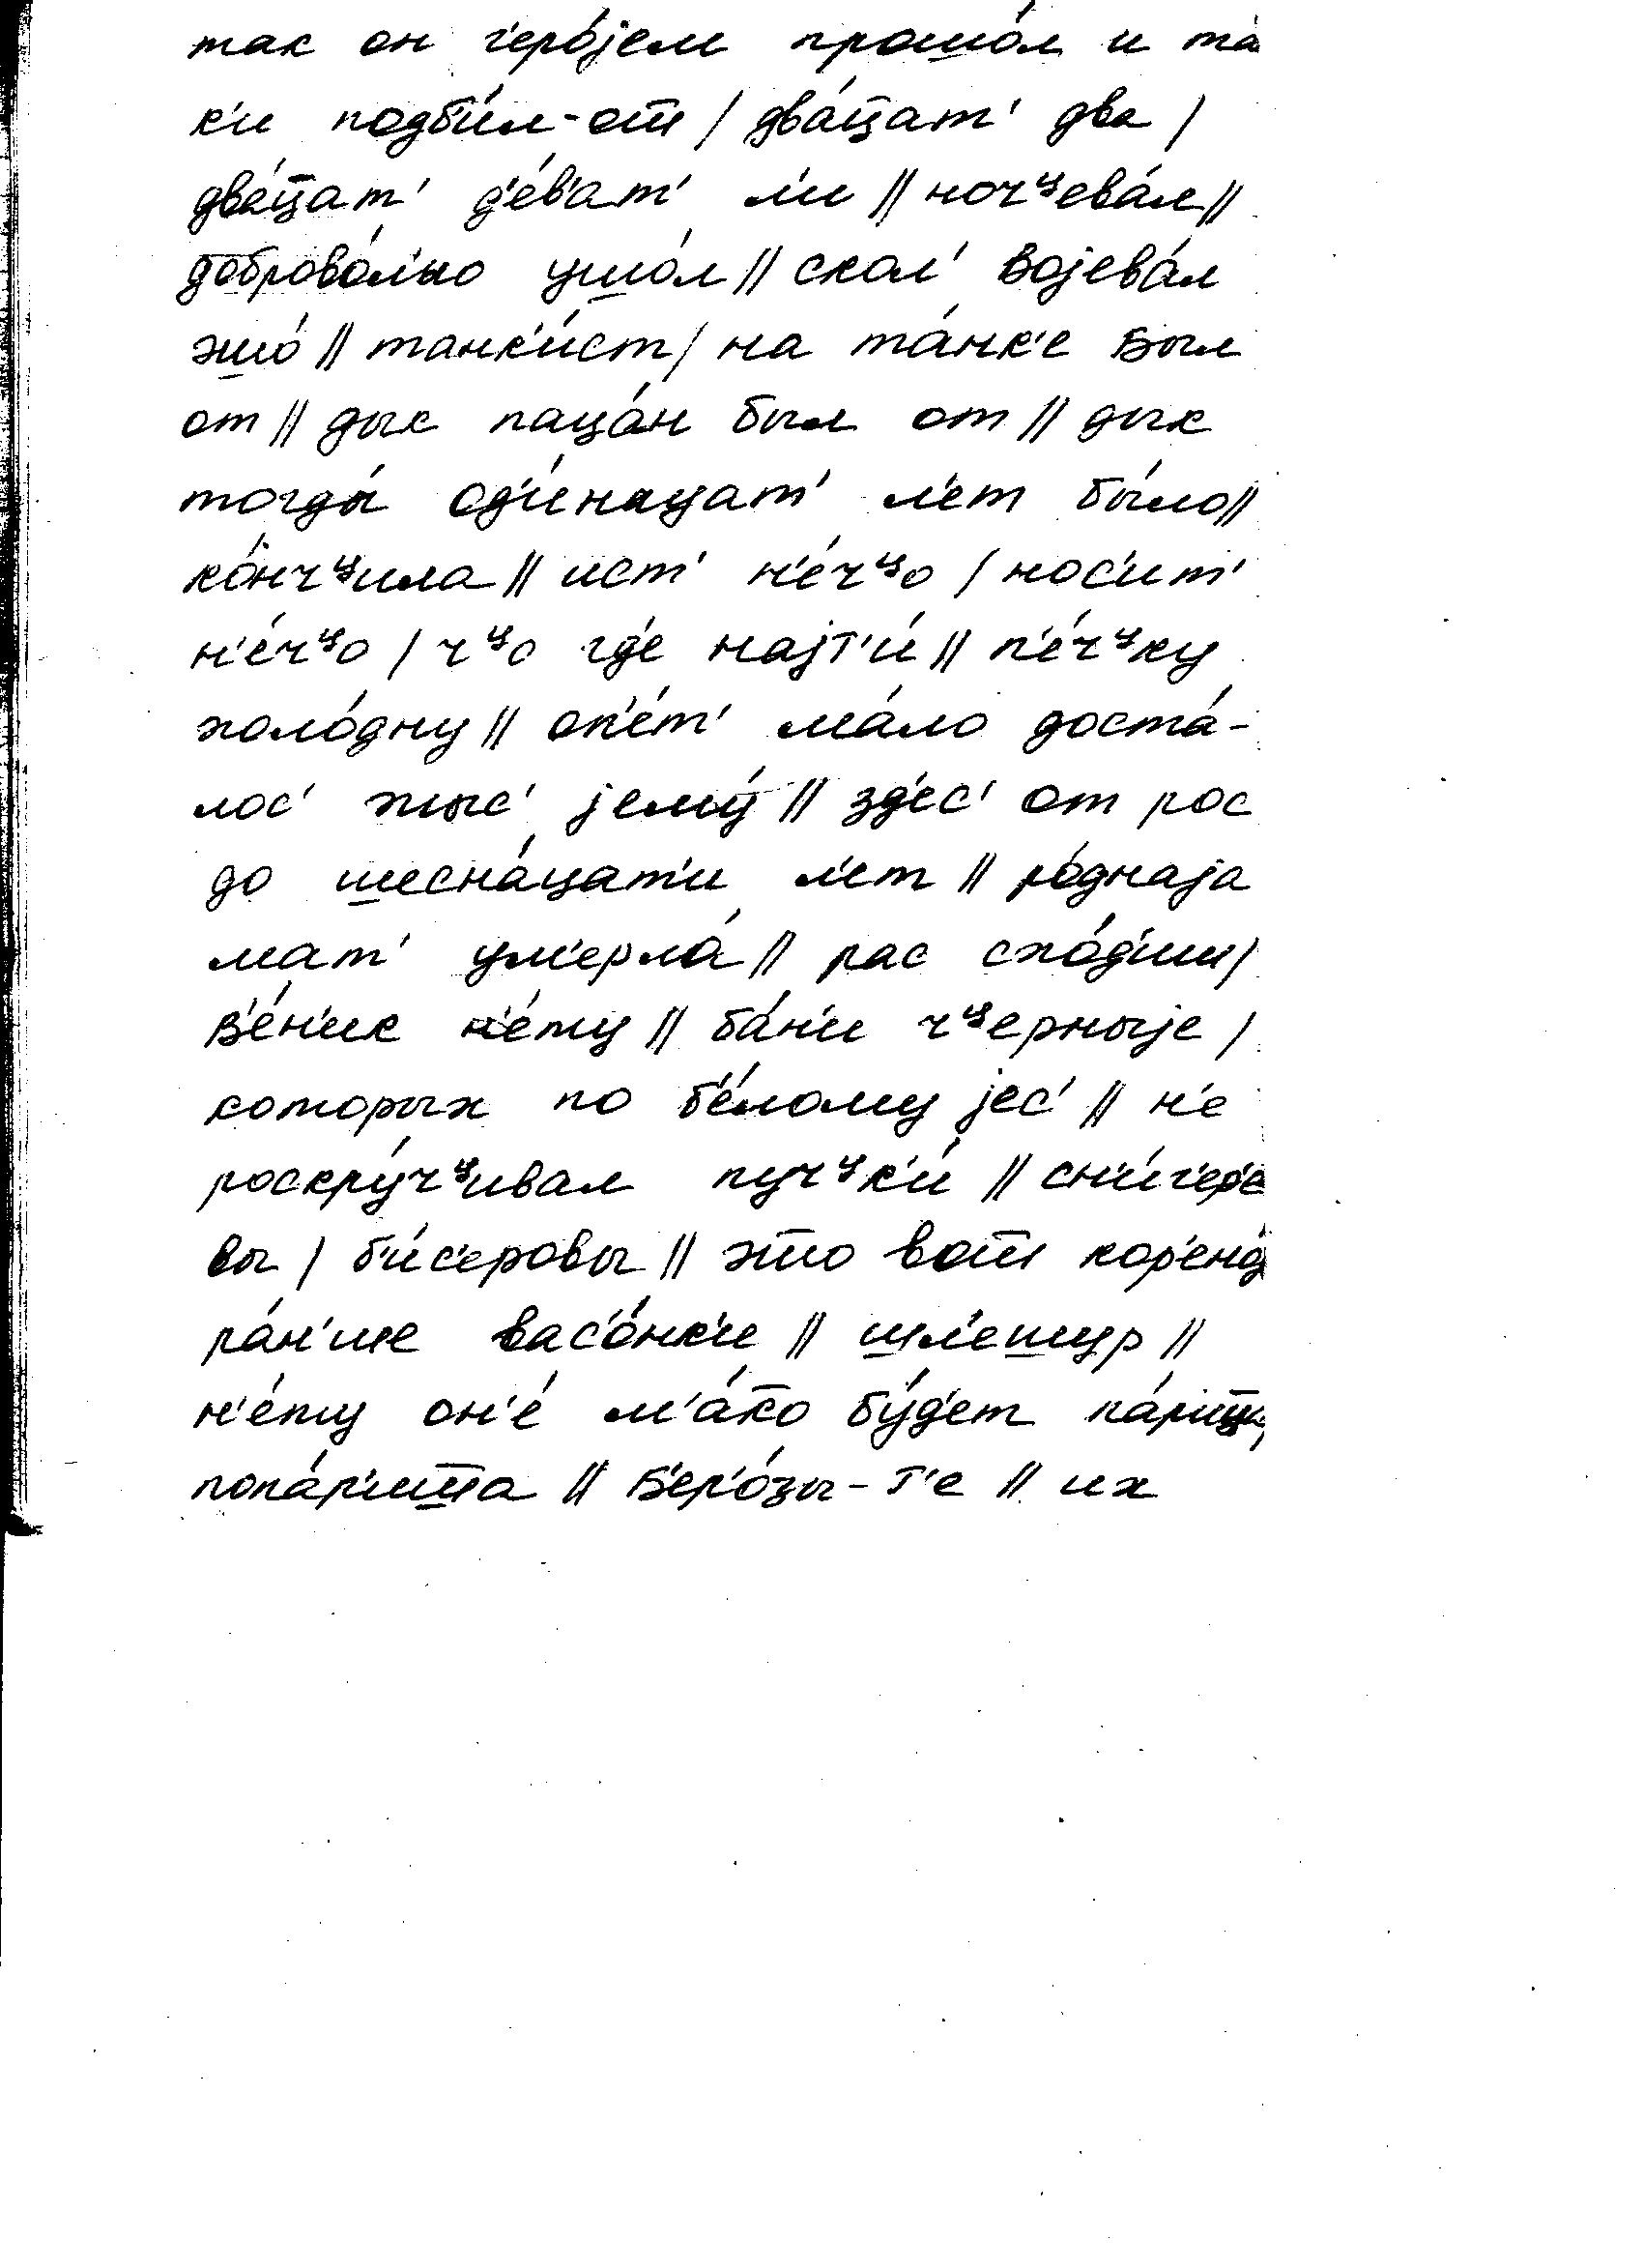 так он г'еро́јем прошо́л и та́
к'и подб'и́л-от / два́ц̅ат' два /
два́ц̅ат' д'е́в'ат' л'и // ночᶣева́л //
доброво́л'но ушо́л // скол' војева́л
эшо́ // танк'и́ст / на та́нк'е был
от // дык паца́н был от // дык
тогды́ од'и́нацат' л'ет бы́ло //
ко́нчᶣила // ист' н'е́чᶣо / нос'ит'
н'е́чᶣо / чᶣо гд'е најт'и́ // п'е́чᶣку
холо́дну // оп'е́т' ма́ло доста́-
лос' жыс' јему́ // зд'ес' от рос
до шесна́цат'и л'ет // ро́днаја
мат' ум'ерла́ // рас схо́д'иш /
в'е́н'ик н'е́ту // ба́н'и чᶣерныје /
которых по б'е́лому јес' // н'е
роскру́чᶣивал пучᶣк'и́ // сн'и́г'ер'е
вы / б'и́с'еровы // э̄то вот кор'ено́
ра́н'ше вас'о́нк'и // шл'ешур //
н'е́ту он'е́ м'а́ко бу́д'ет
попа́р'ишша // б'ер'о́зы-т'е // их